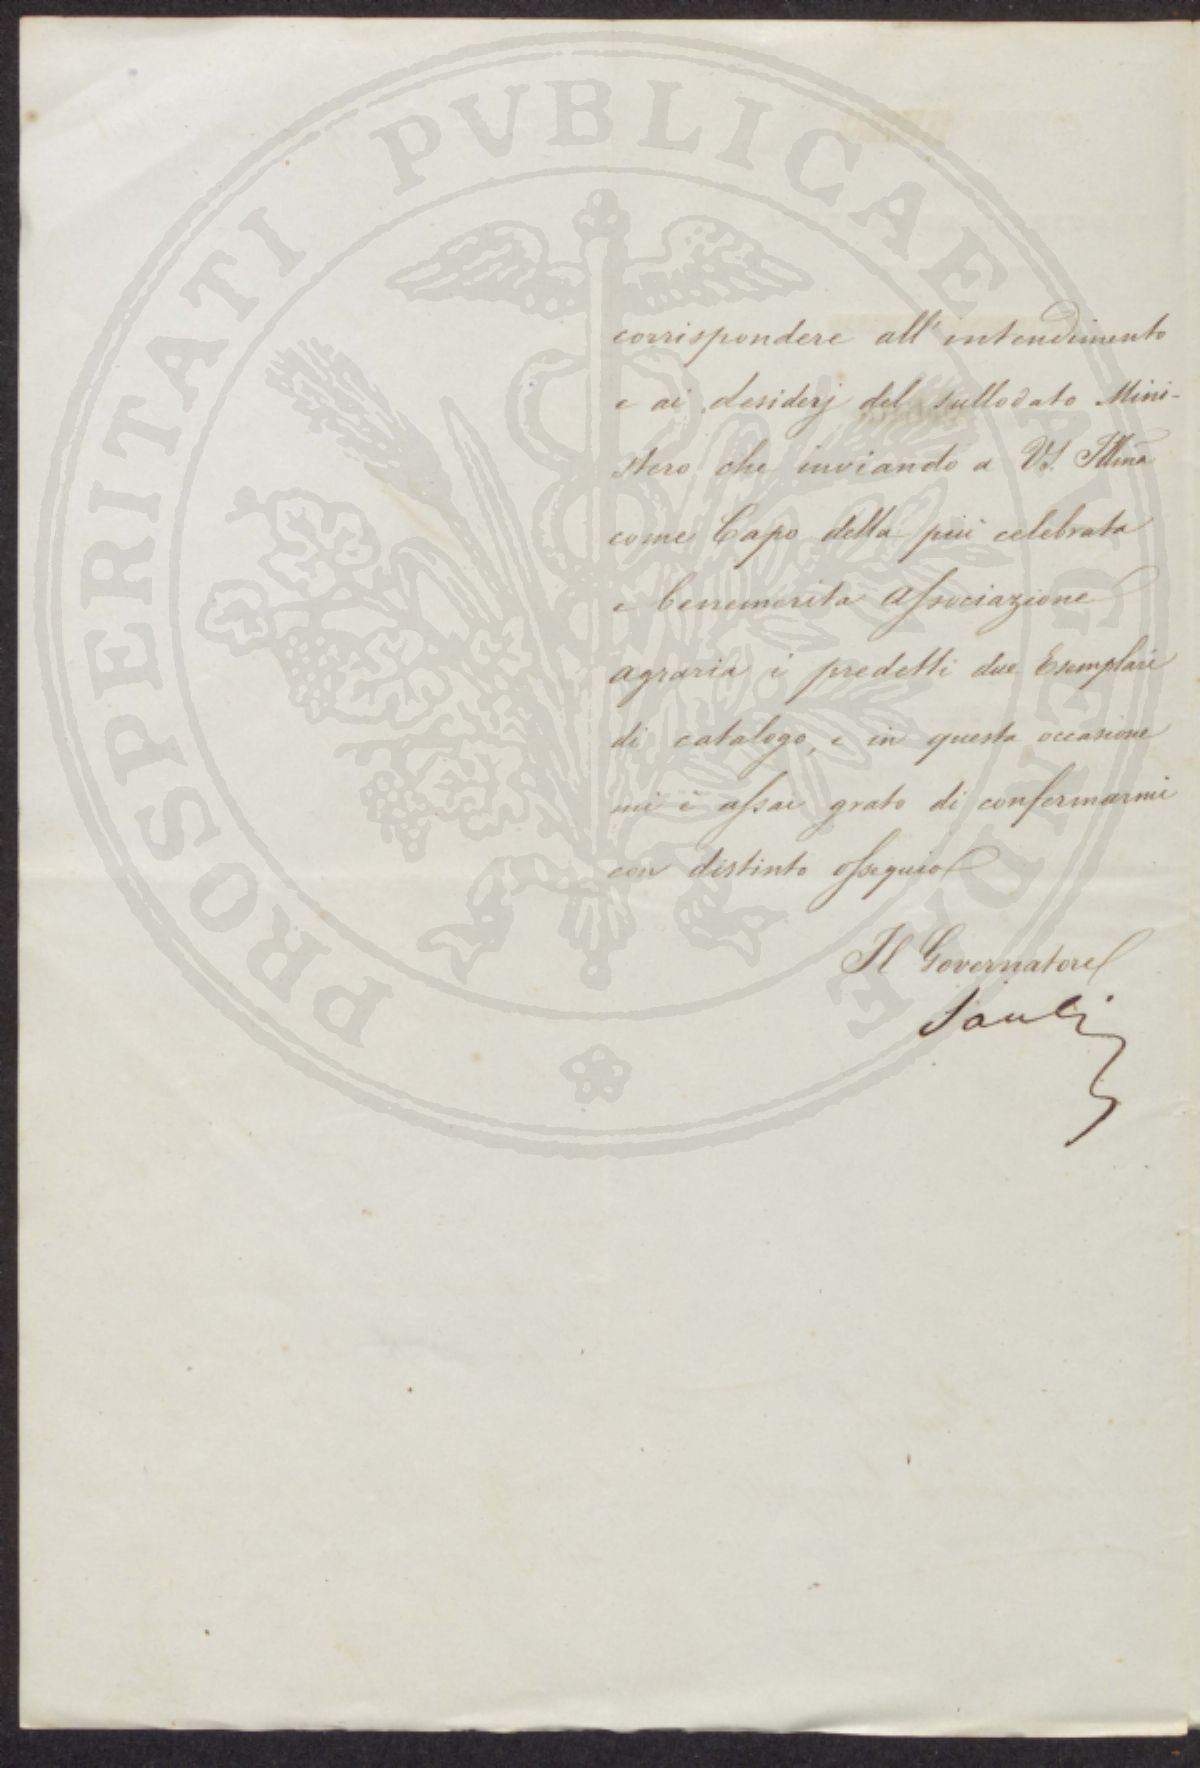 corrispondere all'intendimento
e ai desiderj del sullodato Mini-
stero che inviando a VS. Illma
come Capo della più celebrata
e benemerita Associazione
agraria i predetti due Esemplari
di catalogo, e in questa occasione
mi è assai grato di confermarmi
con distinto ossequio
Il Governatore
Sauli
PROSPERITATI PVBLICAE AVGENDAE